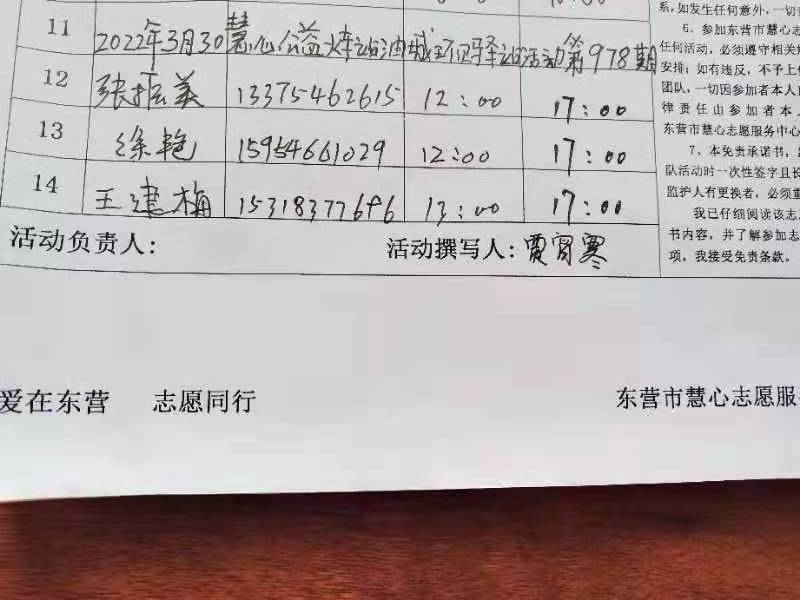 11
2022年3月30慧心公益火炸站油城环卫驿站活动第978期
12 张振英 13375462615 12:00 17:00
13 徐艳 15954661029 12:00 17:00
14 王建梅 15318377696 13:00 17:00
活动负责人: 活动撰写人:贾宵寒
系,如发生任何意外,一切
6、参加东营市慧心
任何活动,必须遵守相关
安排;如有违反,不予上
团队,一切因参加者本人
律责任由参加者本人
东营市慧心志愿服务中心
7、本免责承诺书,
队活动时一次性签字且长
监护人有更换者,必须重
我已仔细阅读该志
书内容,并了解参加志
项,我接受免责条款。
爱在东营 志愿同行 东营市慧心志愿服